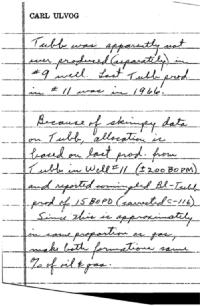 CARL ULVOG
Tubb was apparently not
ever produced (separately) in
#9 well. Last Tubb prod
in #11 was in 1966.
Because of skimpy data
on Tubb, allocation is
based on last prod. from
Tubb in Well #11 (±200 BOPM)
and reported commingled Bl-Tubb
prod of 15 BOPD (corrected C-116)
Since this is approximately
in same proportion as gas,
make both formations same
% of oil & gas.